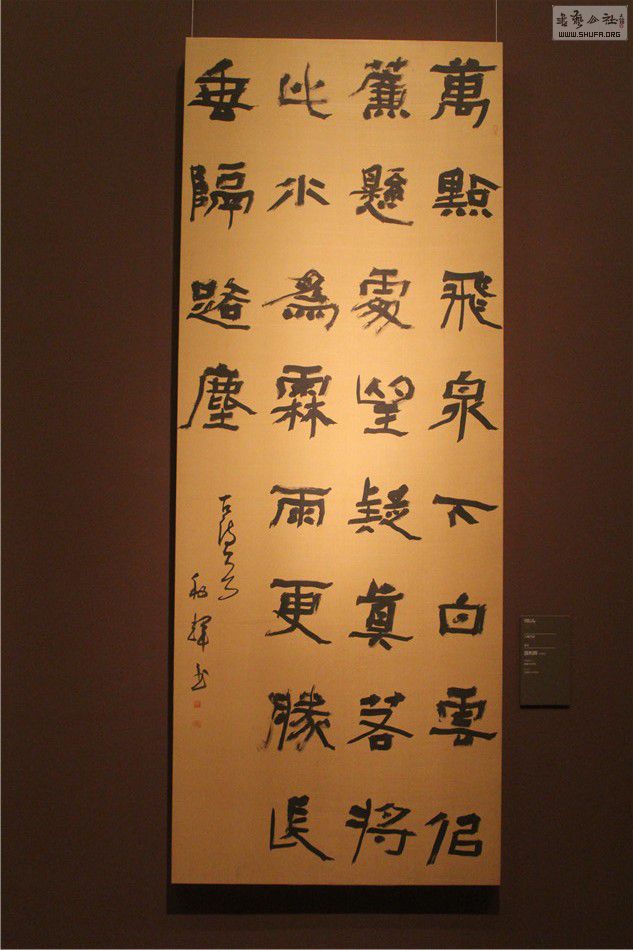 萬點飛泉下白雲佀
簾懸處望疑眞若將
此水為霖雨更勝長
垂隔路塵
古詩一首
輝书
書藝公社
WWW.SHUFA.ORG